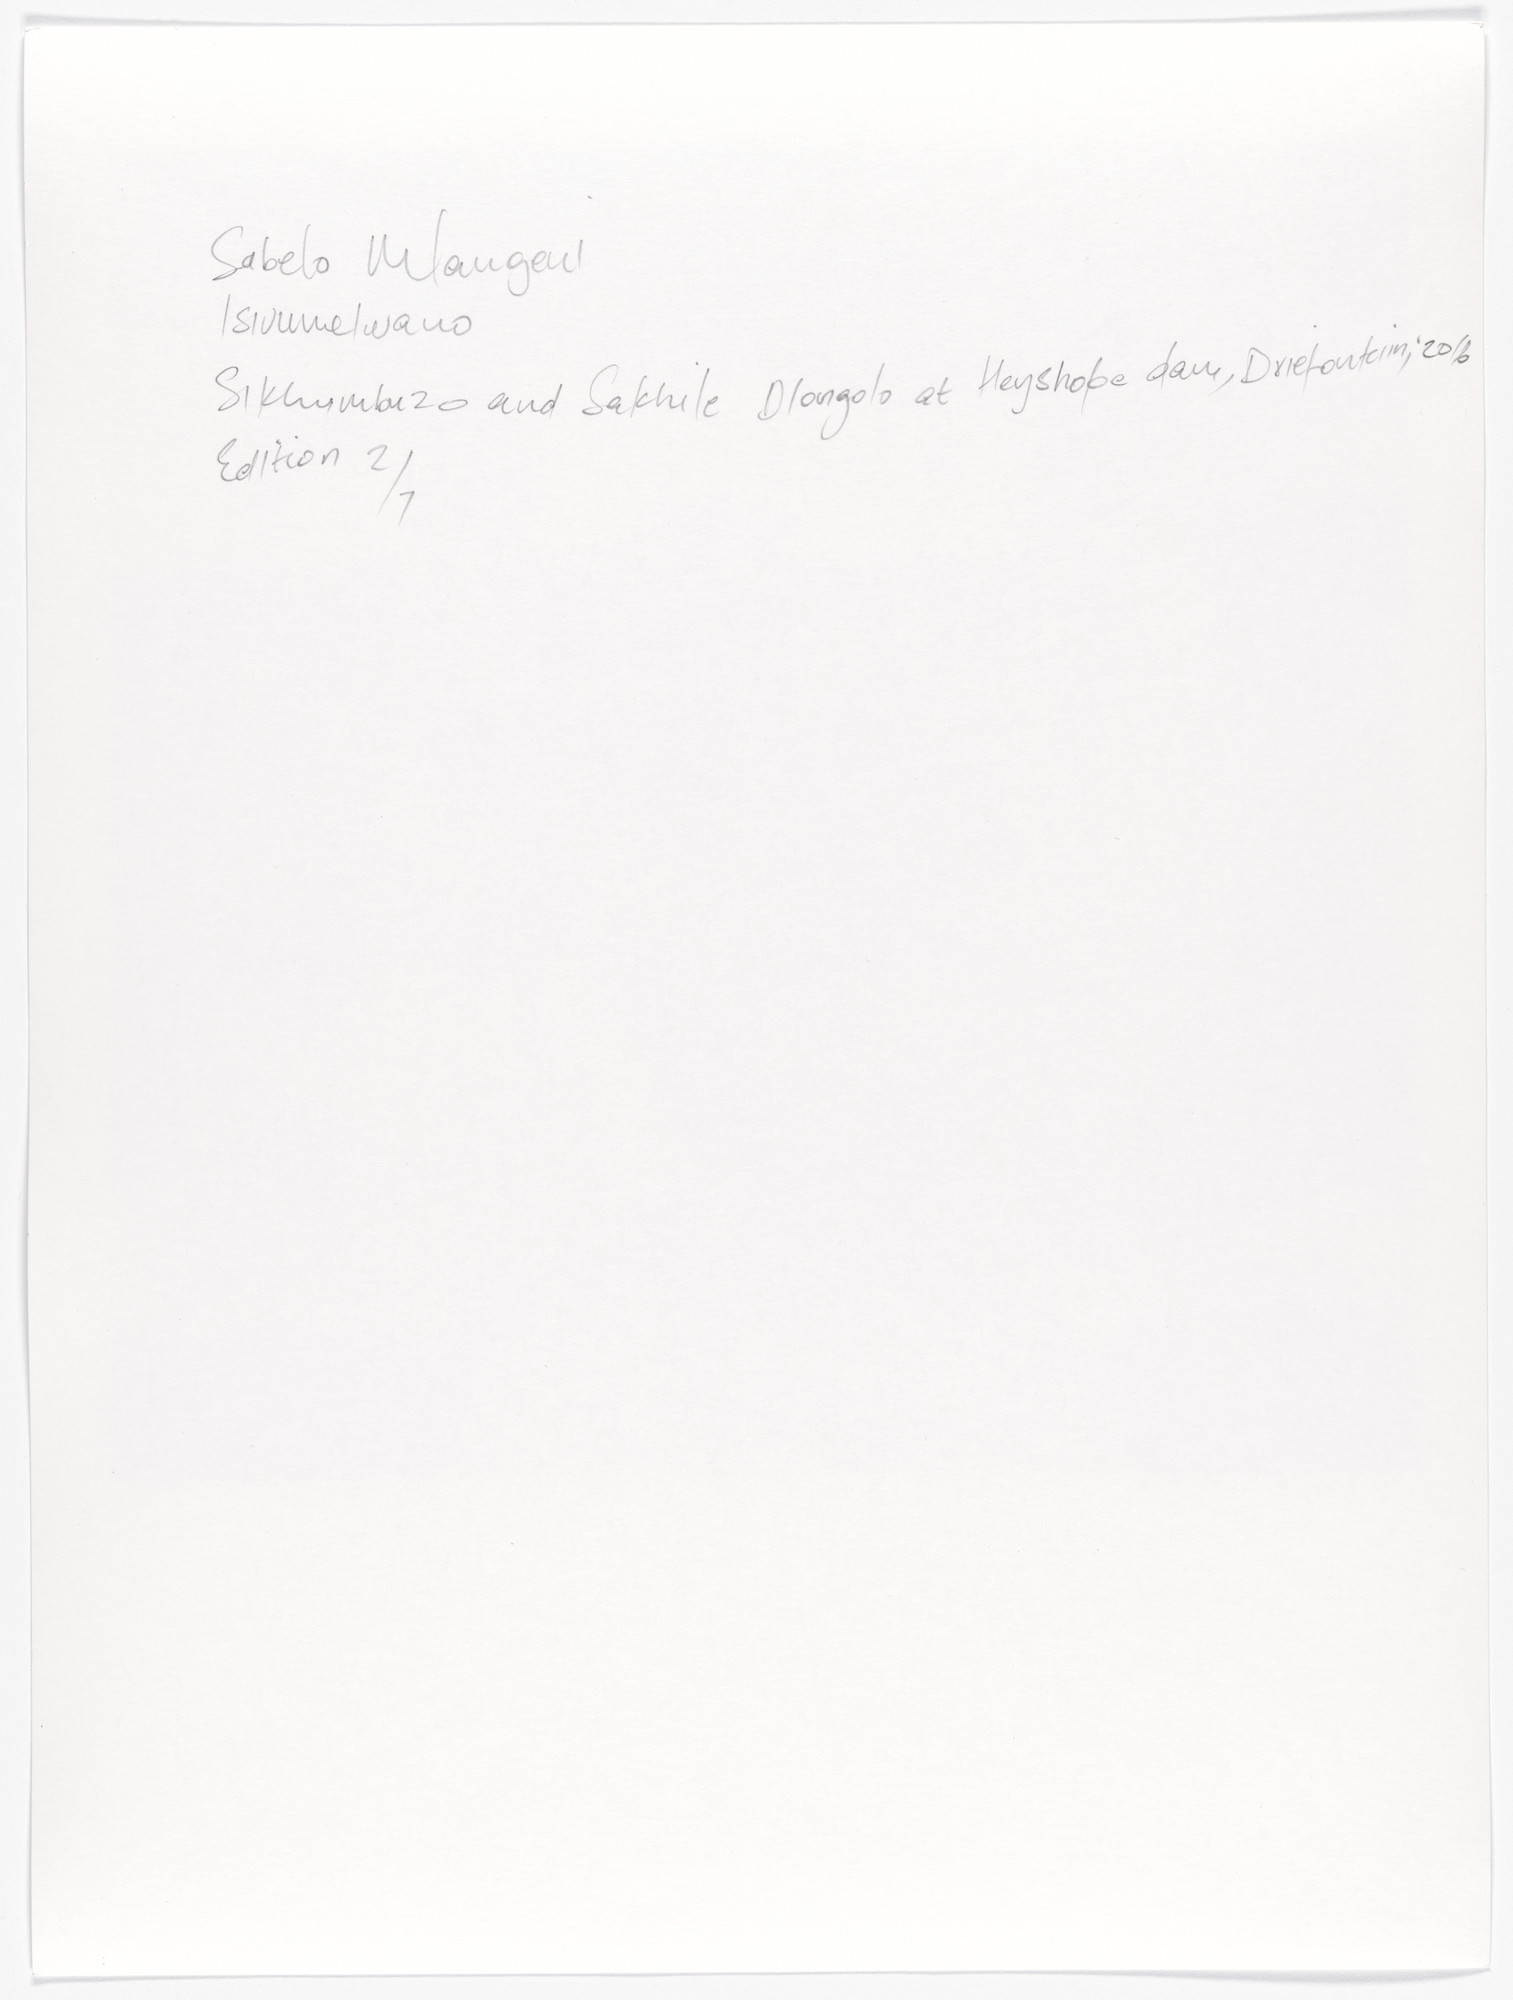 Sabelo Mlangeni
Isivumelwano
Sikhumbuzo and Sakhile Dlongolo at Heyshope dam, Driefontein, 2016
Edition 2/7